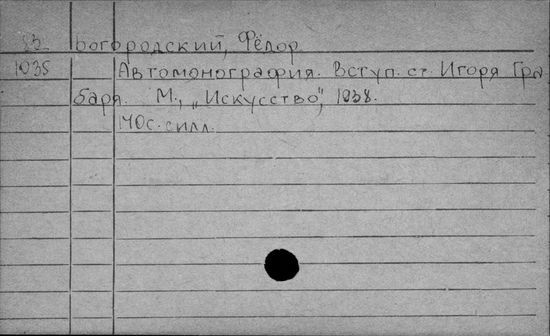 Богородский, Фёдор
1938 Автомонография. Вступ. ст. Игоря Гра
баря. М., „Искусство", 1938.
140с. с илл.